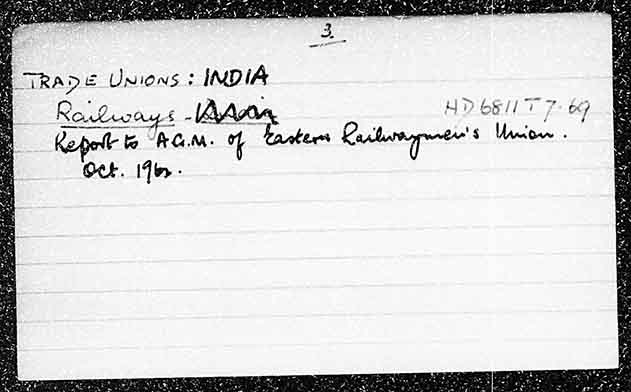 3.
TRADE UNIONS: INDIA
Railways - HD6811 T7.69
Report to A.G.M. of Eastern Railwaymen's Union.
Oct.